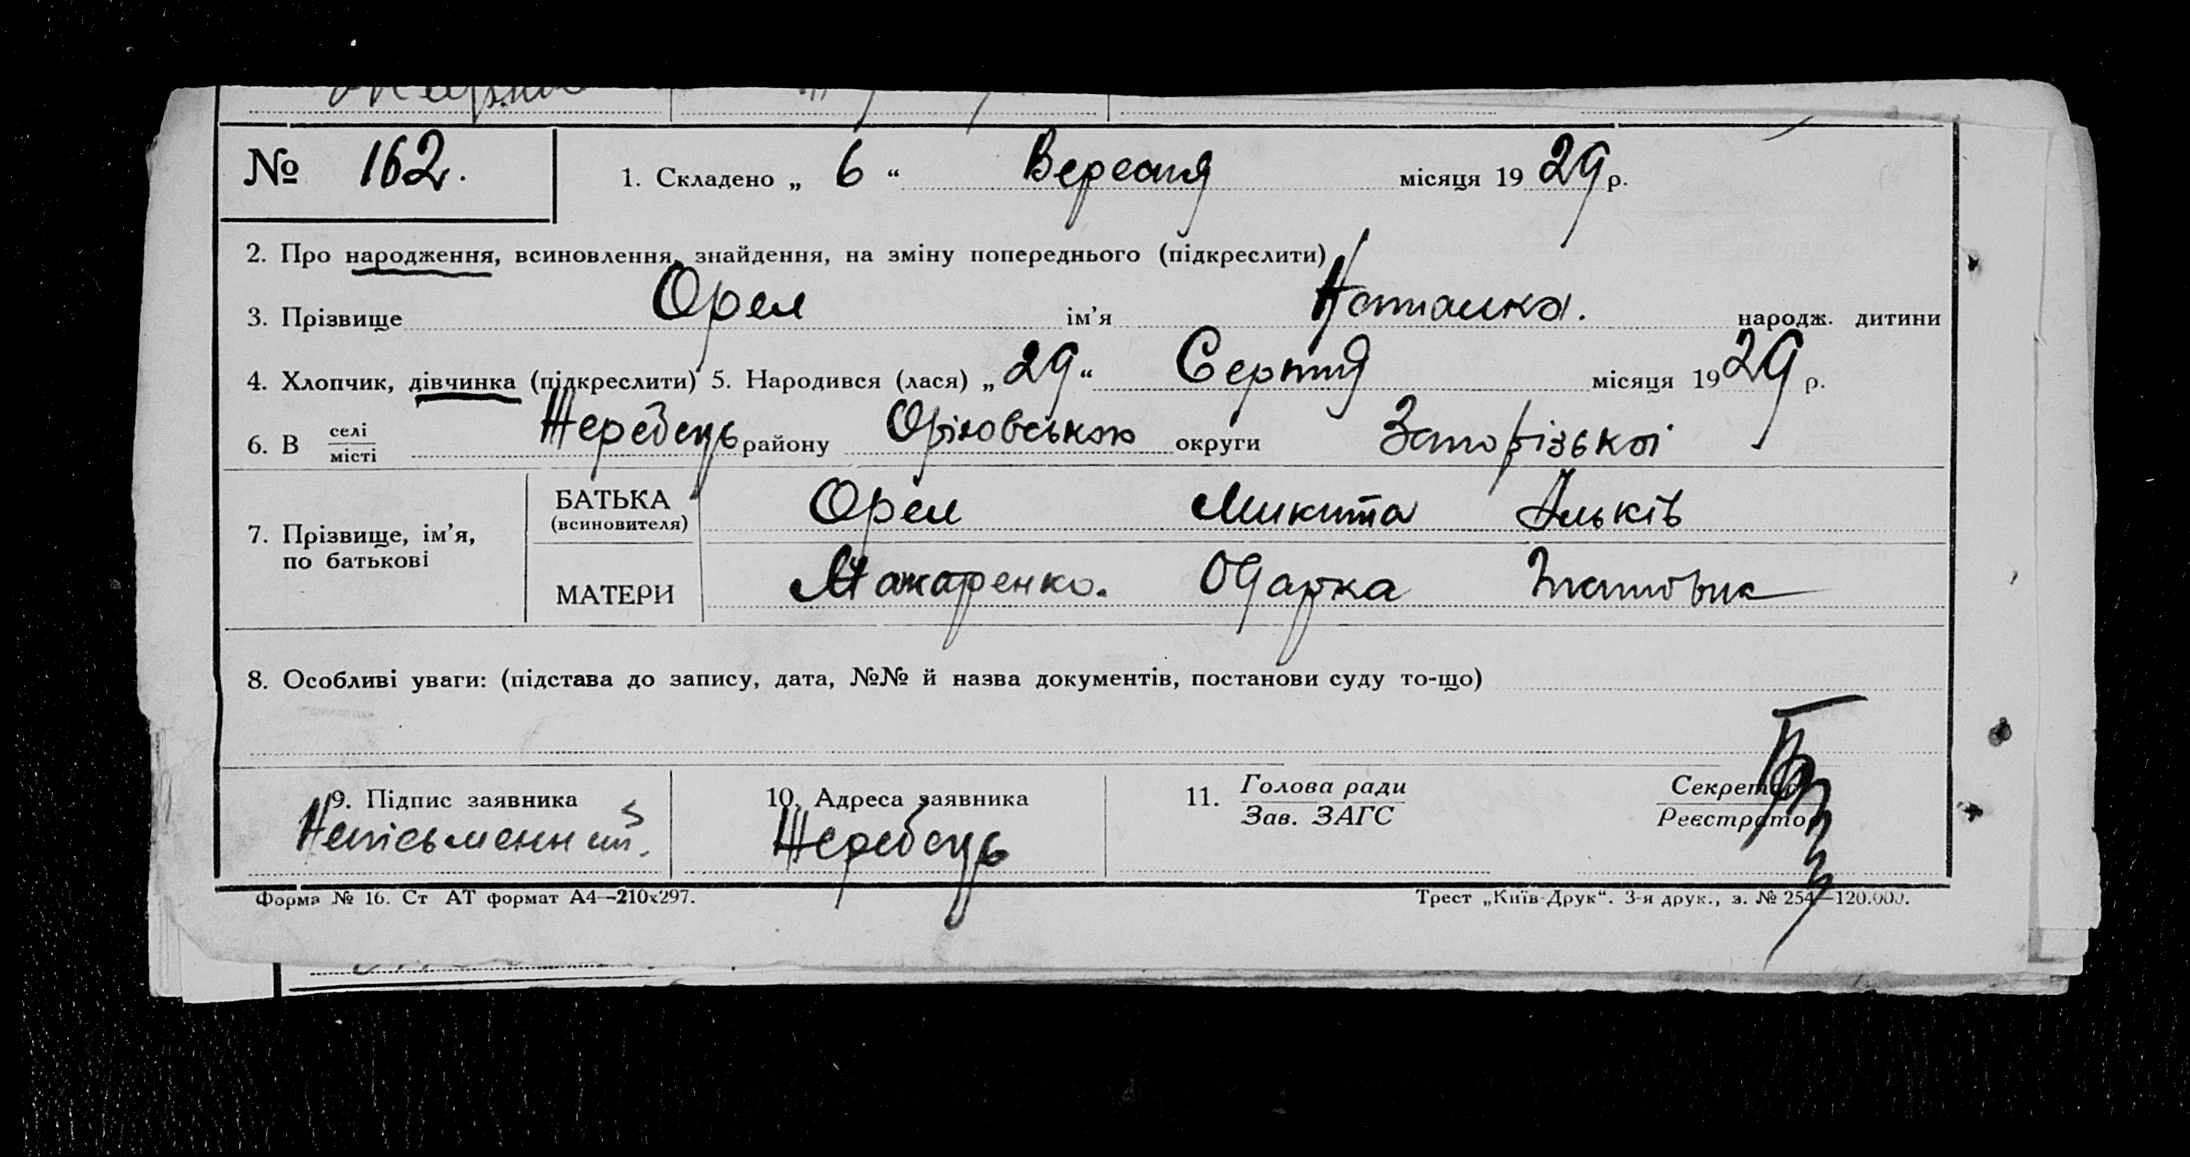 № 162. 1. Складено „ 6 “ Вересня місяця 1929 р.
2. Про народження, всиновлення, знайдення, на зміну попереднього (підкреслити)
3. Прізвище Орел ім’я Наталка. народж. дитини
4. Хлопчик, дівчинка (підкреслити) 5. Народився (лася) „ 29 “ Серпня місяця 1929 р.
6. В селі місті Жеребець району Оріховського округи Запорізької
7. Прізвище, ім’я, по батькові
БАТЬКА (всиновителя) Орел Микита Ільків
МАТЕРИ Макаренко. Одарка
8. Особливі уваги: (підстава до запису, дата, №№ й назва документів, постанови суду то-що)
9. Підпис заявника 10. Адреса заявника 11. Голова ради Зав. ЗАГС Секретар Реєстратор
Неписьменний. Жеребець
Форма № 16. Ст АТ формат А4—210х297. Трест „Київ-Друк“. 3-я друк., з. № 254—120.000.